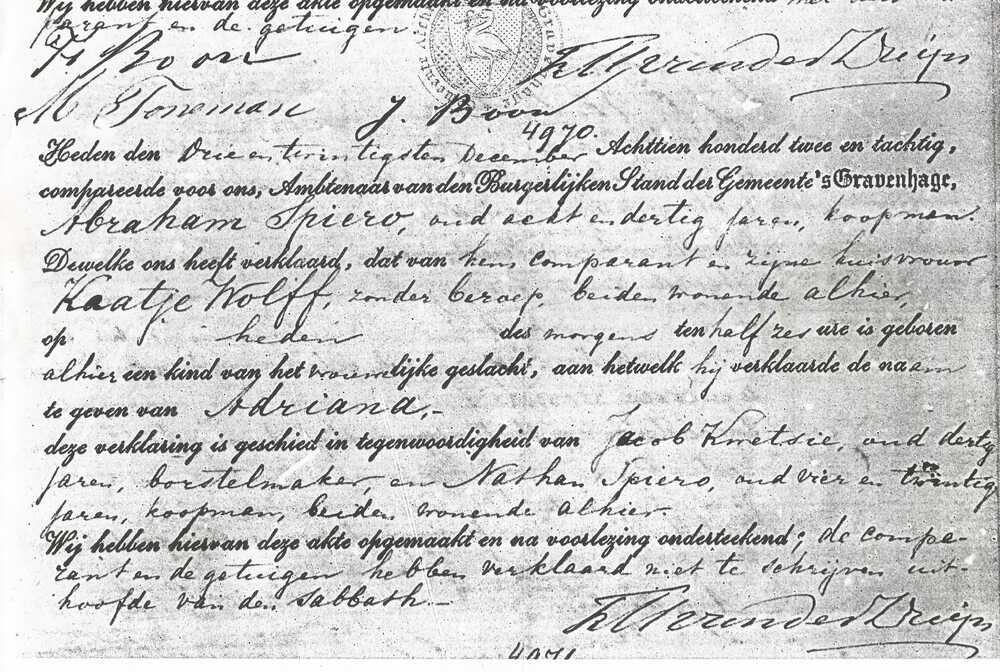 Wij hebben hiervan deze akte opgemaakt en na voorlezing onderteekend met
parant en de getuigen
Boon
M Toneman J. Boon
4970.
Heden den Drie en twintigsten December Achttien honderd twee en tachtig,
compareerde voor ons, Ambtenaar van den Burgerlijken Stand der Gemeente 's Gravenhage,
Abraham Spiero, oud acht en dertig jaren, koopman.
Dewelke ons heeft verklaard, dat van hem comparant en zijne huisvrouw
Kaatje Wolff, zonder beroep, beiden wonende alhier,
op heden des morgens ten half zes ure is geboren
alhier een kind van het vrouwelijke geslacht, aan hetwelk hij verklaarde de naam
te geven van Adriana,-
deze verklaring is geschied in tegenwoordigheid van Jacob Kwetsie, oud dertig
jaren, borstelmaker, en Nathan Spiero, oud vier en twintig
jaren, koopman, beiden wonende alhier
Wij hebben hiervan deze akte opgemaakt en na voorlezing onderteekend; de compa-
rant en de getuigen hebben verklaard niet te schrijven uit-
hoofde van den Sabbath-
4971